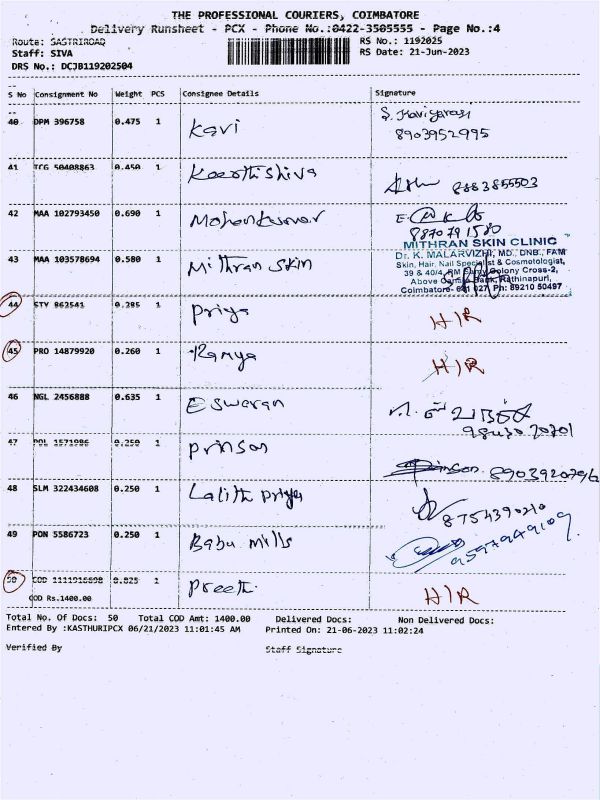 THE PROFESSIONAL COURIERS, COIMBATORE
Delivery Runsheet - PCX - Phone No.:0422-3505555 - Page No.:4
Route: SASTRIROAD RS No.: 1192025
Staff: SIVA RS Date: 21-Jun-2023
DRS No.: DCJB119202504
S No Consignment No Weight PCS Consignee Details Signature
40 DPM 396758 0.475 1 Kavi S. Kavigarasi
8903952995
41 TCG 50408863 0.450 1 Keerthi Shiva 8883855503
42 MAA 102793450 0.690 1 Mohankumar
8870791580
43 MAA 103578694 0.580 1 Mithran Skin
MITHRAN SKIN CLINIC
Dr. K. MALARVIZHI, MD., DNB., FAM
Skin, Hair, Nail Specialist & Cosmotologist,
39 & 40/4, Colony Cross-2,
Above Bank, Rathinapuri,
Coimbatore- 641 027. Ph: 89210 50497
44 STY 862541 0.285 1 Priya H/R
45 PRO 14879920 0.260 1 Ramya H/R
46 NGL 2456888 0.635 1 Eswaran
47 POL 1571986 0.250 1 Prinson 8903920796
48 SLM 322434608 0.250 1 Lalith Priya
8754390210
49 PON 5586723 0.250 1 Babu Mills
9597949109
50 COD 1111916698 0.825 1 Preethi H/R
COD Rs.1400.00
Total No. Of Docs: 50 Total COD Amt: 1400.00 Delivered Docs: Non Delivered Docs:
Entered By :KASTHURIPCX 06/21/2023 11:01:45 AM Printed On: 21-06-2023 11:02:24
Verified By Staff Signature